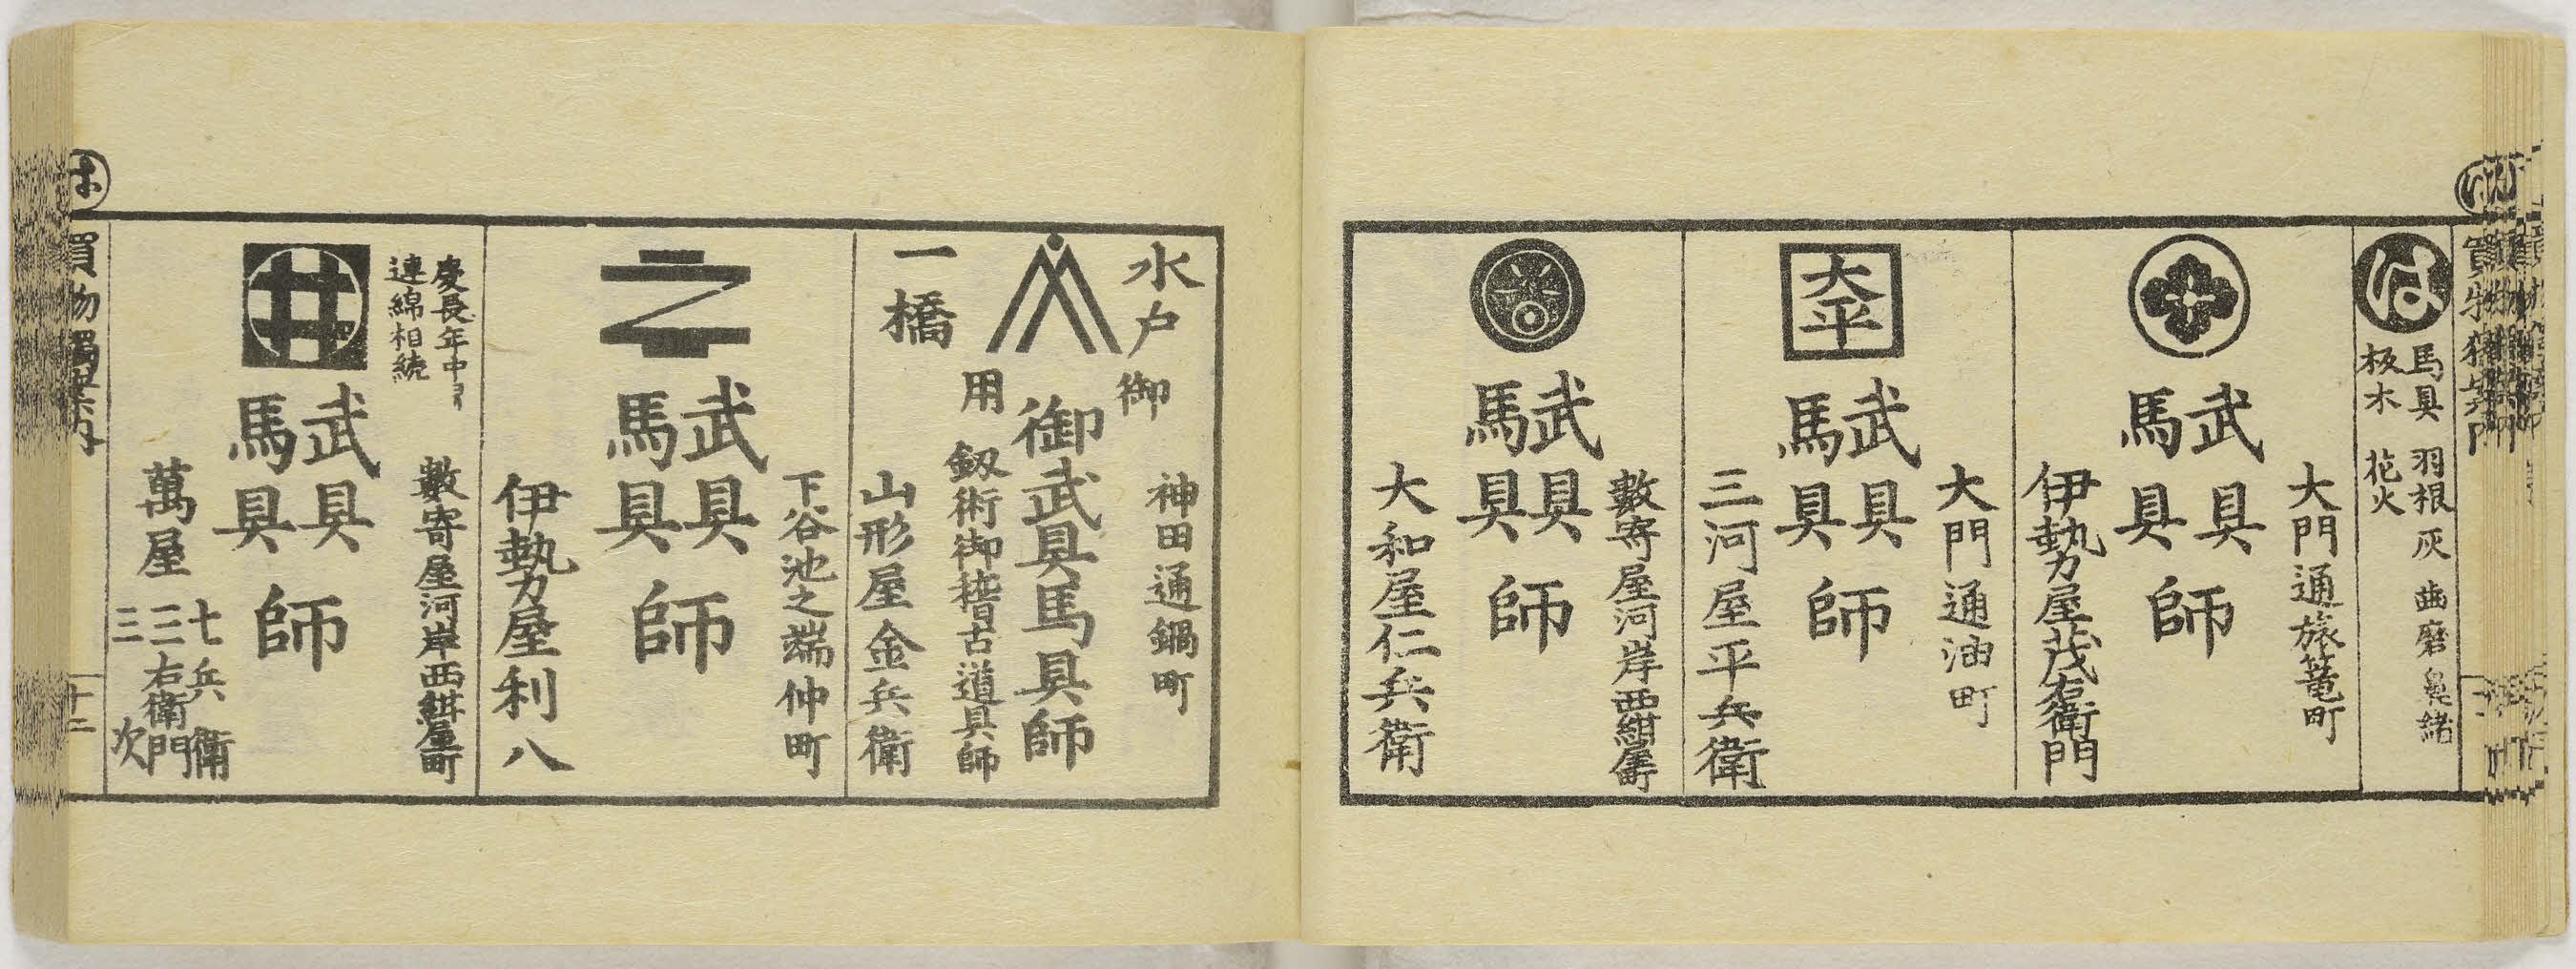 は
馬具 羽根 灰 歯磨 鼻緒
板木 花火
大門通旅篭町
武具
馬具
師
伊勢屋茂右衛門
大平
大門通油町
武具
馬具
師
三河屋平兵衛
數寄屋河岸西紺屋町
武具
馬具
師
大和屋仁兵衛
水戸御
一橋
用
神田通鍋町
御武具馬具師
釼術御稽古道具師
山形屋金兵衛
下谷池之端仲町
武具
馬具
師
伊勢屋利八
慶長年中ヨリ
連綿相続
數寄屋河岸西紺屋町
井
武具
馬具
師
萬屋
七兵衛
三右衛門
三次
は
買物獨案内
十二